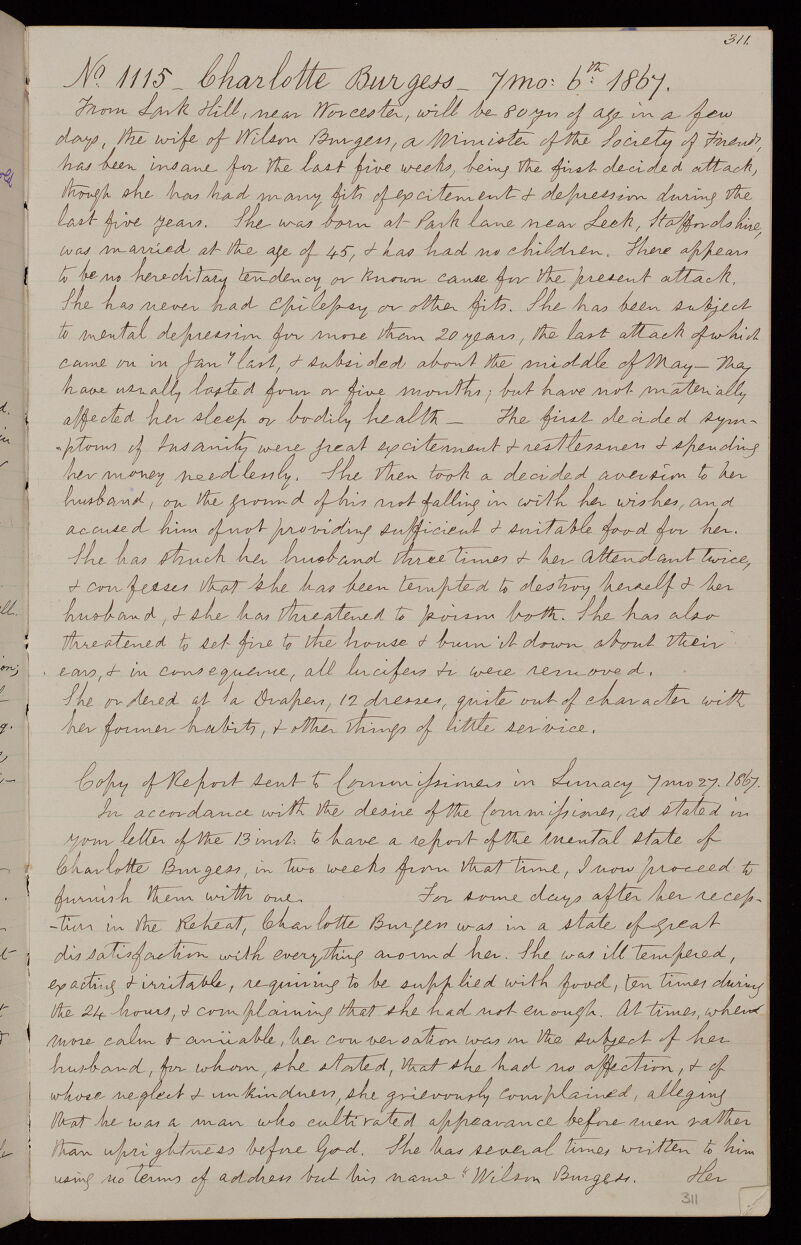 311.
No. 1115 - Charlotte Burgess - 7 mo: 6th: 1867.
From Lark Hill, near Worcester, will be 80 yrs of age in a few
days, the wife of Wilson Burgess, a Minister of the Society of Friends,
has been insane for the last five weeks, being the first decided attack,
though she has had many fits of excitement & depression during the
last five years. She was born at Park lane near Leek, Staffordshire,
was married at the age of 45, & has had no children. There appears
to be no hereditary tendency or known cause for the present attack.
She has never had epilepsy or other fits. She has been subject
to mental depression for more than 20 years, the last attack of which
came on in Jany last, & subsided about the middle of May - They
have usually lasted four or five months; but have not materially
affected her sleep or bodily health - The first decided sym-
-ptoms of Insanity were great excitement & restlessness & spending
her money needlessly. She then took a decided aversion to her
husband, on the ground of his not falling in with her wishes, and
accused him of not providing sufficient & suitable food for her.
She has struck her husband three times & her attendant twice,
& confesses that she has been tempted to destroy herself & her
husband, & she has threatened to poison both. She has also
threatened to set fire to the house & burn it down about their
ears, & in consequence, all lucifers &c were removed.
She ordered at a Drapers, 12 dresses, quite out of character with
her former habits, & other things of little service.
Copy of Report sent to Commissioners in Lunacy 7 mo 27. 1867.
In accordance with the desire of the Commissioners, as stated in
your letter of the 13 inst: to have a report of the mental state of
Charlotte Burgess, in two weeks from that time, I now proceed to
furnish them with one. For some days after her recep-
-tion in the Retreat, Charlotte Burgess was in a state of great
dissatisfaction with everything around her. She was ill tempered,
exacting & irritable, requiring to be supplied with food, ten times during
the 24 hours, & complaining that she had not enough. At times, when
more calm & amiable, her conversation was on the subject of her
husband, for whom, she stated, that she had no affection, & of
whose neglect & unkindness, she grievously complained, alleging
that he was a man who cultivated appearance before men rather
than uprightness before God. She has several times written to him
using no terms of address but his name "Wilson Burgess. Her
311